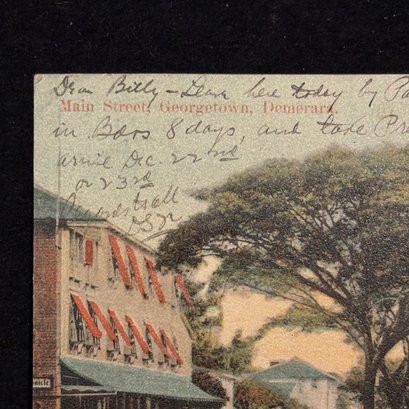 Dear Billy – Leave here today by Pa
Main Street, Georgetown, Demerara.
in Bdos 8 days, and take Pr
arrive Dec. 22nd
or 23rd